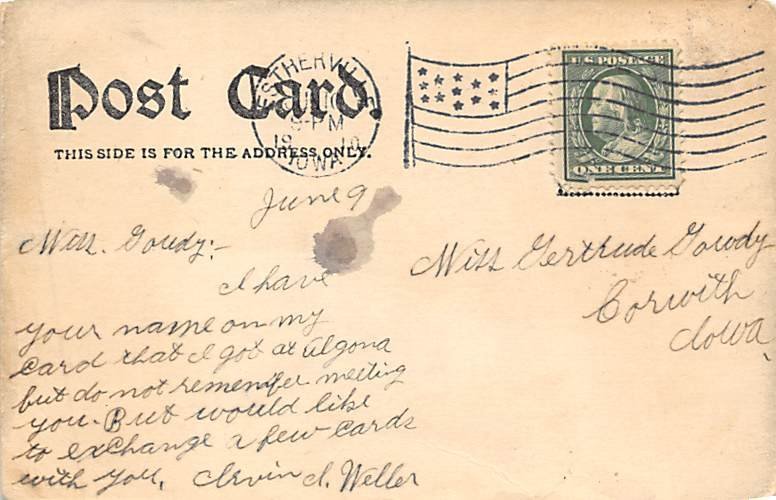 Post Card.
THIS SIDE IS FOR THE ADDRESS ONLY.
ESTHERVILLE
9-PM
1910
IOWA
U.S. POSTAGE
ONE CENT
June 9
Miss. Goudy:-
I have
your name on my
card that I got at Algona
but do not remember meeting
you. But would like
to exchange a few cards
with you,
I. Weller
Miss Gertrude Gowdy
Corwith
Iowa